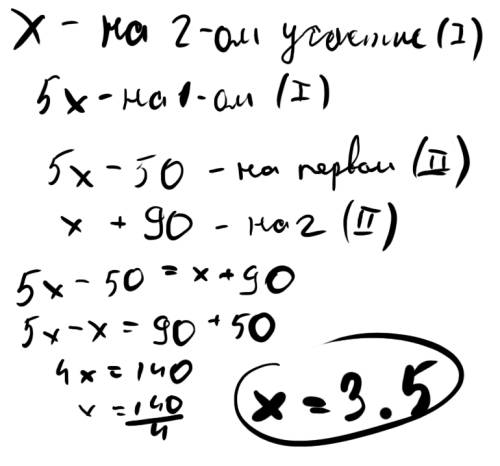 x - на 2-ом участке (I)
5x - на 1-ом (I)
5x - 50 - на первом (II)
x + 90 - на 2 (II)
5x - 50 = x + 90
5x - x = 90 + 50
4x = 140
x = 140/4
x = 3.5